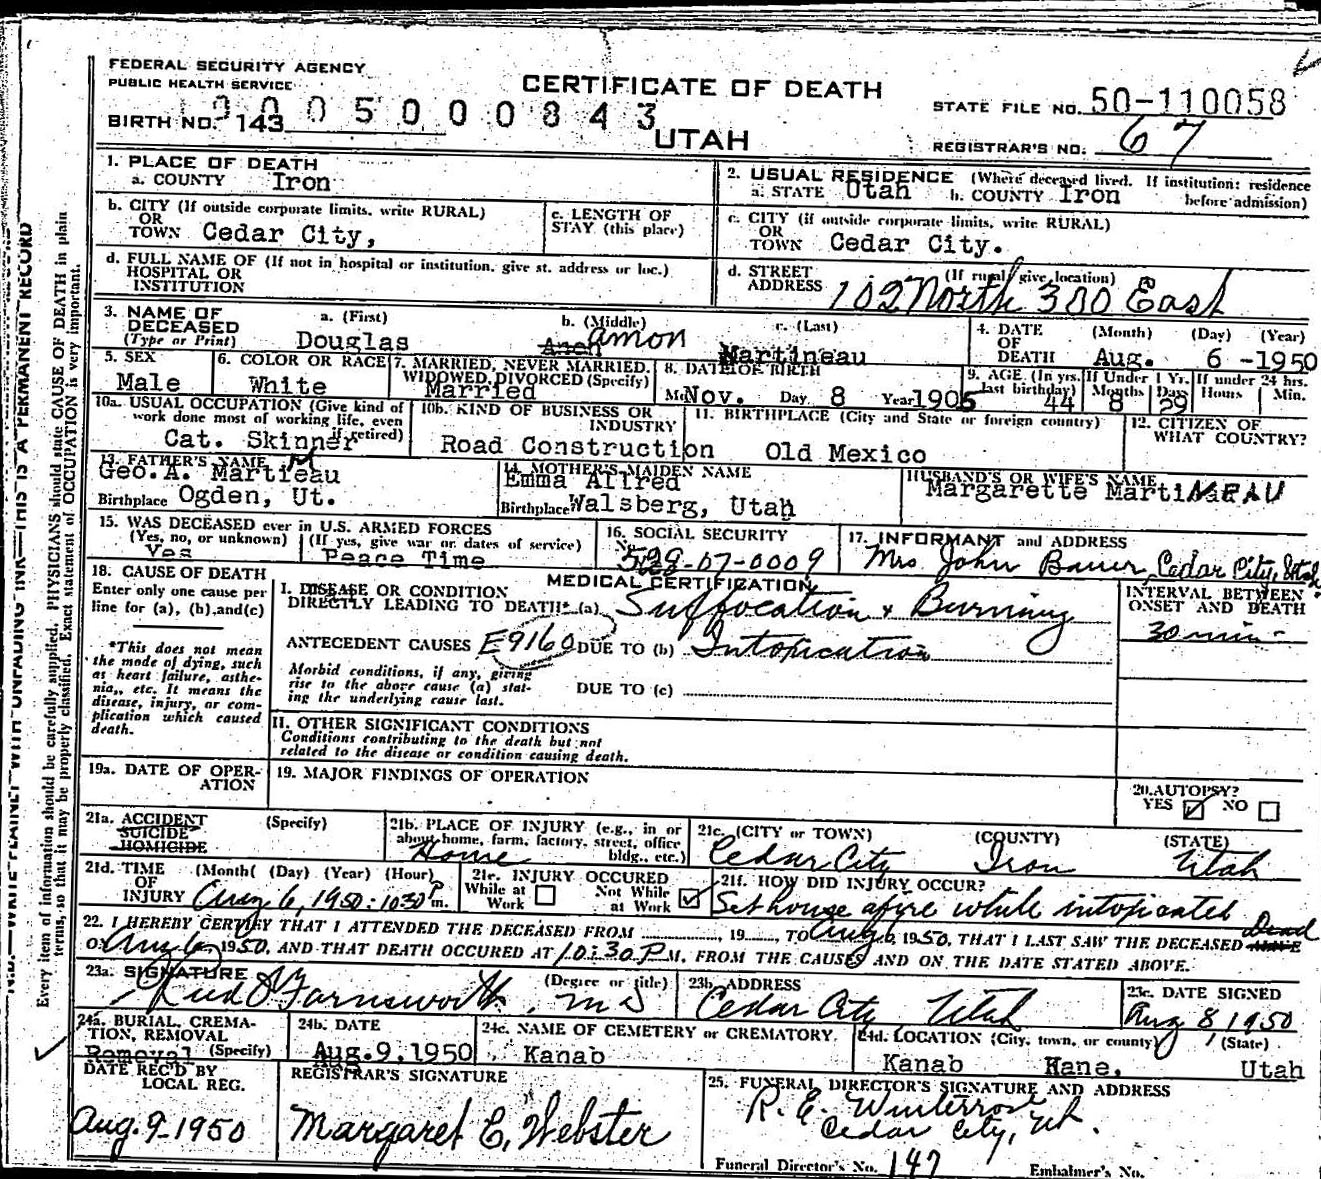 FEDERAL SECURITY AGENCY
PUBLIC HEALTH SERVICE
CERTIFICATE OF DEATH
STATE FILE NO. 50-110058
BIRTH NO. 143 0005000843
UTAH
REGISTRAR'S NO: 67
1. PLACE OF DEATH
a. COUNTY Iron
2. USUAL RESIDENCE (Where deceased lived. If institution: residence before admission)
a. STATE Utah b. COUNTY Iron
b. CITY (If outside corporate limits, write RURAL)
OR
TOWN Cedar City,
c. LENGTH OF
STAY (this place)
c. CITY (if outside corporate limits, write RURAL)
OR
TOWN Cedar City.
d. FULL NAME OF (If not in hospital or institution, give st. address or loc.)
HOSPITAL OR
INSTITUTION
d. STREET (If rural give location)
ADDRESS 102 North 300 East
3. NAME OF
DECEASED
(Type or Print)
a. (First) b. (Middle) c. (Last)
Douglas Amon Martineau
4. DATE (Month) (Day) (Year)
OF
DEATH Aug. 6 -1950
5. SEX
Male
6. COLOR OR RACE
White
7. MARRIED, NEVER MARRIED,
WIDOWED, DIVORCED (Specify)
Married
8. DATE OF BIRTH
Mo Nov. Day 8 Year 1905
9. AGE (In yrs. last birthday) 44
If Under 1 Yr. Months 8 Days 29
If under 24 hrs. Hours Min.
10a. USUAL OCCUPATION (Give kind of
work done most of working life, even
if retired)
Cat. Skinner
10b. KIND OF BUSINESS OR
INDUSTRY
Road Construction
11. BIRTHPLACE (City and State or foreign country)
Old Mexico
12. CITIZEN OF
WHAT COUNTRY?
13. FATHER'S NAME
Geo. A. Martieau
Birthplace Ogden, Ut.
14. MOTHER'S MAIDEN NAME
Emma Allred
Birthplace Walsberg, Utah
HUSBAND'S OR WIFE'S NAME
Margarette MartiNEAU
15. WAS DECEASED ever in U.S. ARMED FORCES
(Yes, no, or unknown) (If yes, give war or dates of service)
Yes Peace Time
16. SOCIAL SECURITY
No. 529-07-0009
17. INFORMANT and ADDRESS
Mrs. John Bauer, Cedar City, Utah
18. CAUSE OF DEATH
Enter only one cause per
line for (a), (b), and (c)
*This does not mean
the mode of dying, such
as heart failure, asthe-
nia,, etc. It means the
disease, injury, or com-
plication which caused
death.
MEDICAL CERTIFICATION
I. DISEASE OR CONDITION
DIRECTLY LEADING TO DEATH* (a) Suffocation & Burning
ANTECEDENT CAUSES E9160 DUE TO (b) Intoxication
Morbid conditions, if any, giving
rise to the above cause (a) stat-
ing the underlying cause last.
DUE TO (c)
INTERVAL BETWEEN
ONSET AND DEATH
30 min-
II. OTHER SIGNIFICANT CONDITIONS
Conditions contributing to the death but not
related to the disease or condition causing death.
19a. DATE OF OPER-
ATION
19. MAJOR FINDINGS OF OPERATION
20. AUTOPSY?
YES NO
21a. ACCIDENT (Specify)
SUICIDE
HOMICIDE
21b. PLACE OF INJURY (e.g., in or
about home, farm, factory, street, office
bldg., etc.)
Home
21c. (CITY or TOWN) (COUNTY) (STATE)
Cedar City Iron Utah
21d. TIME (Month( (Day) (Year) (Hour)
OF
INJURY Aug 6, 1950 : 1030 P m.
21e. INJURY OCCURED
While at Work Not While at Work
21f. HOW DID INJURY OCCUR?
Set house afire while intoxicated
22. I HEREBY CERTIFY THAT I ATTENDED THE DECEASED FROM , 19 , TO Aug 6, 1950, THAT I LAST SAW THE DECEASED ALIVE Dead
ON Aug 6, 1950, AND THAT DEATH OCCURED AT 10:30 P M, FROM THE CAUSES AND ON THE DATE STATED ABOVE.
23a. SIGNATURE (Degree or title)
Reed Farnsworth, MD
23b. ADDRESS
Cedar City Utah
23c. DATE SIGNED
Aug 8, 1950
24a. BURIAL, CREMA-
TION, REMOVAL
Removal (Specify)
24b. DATE
Aug. 9, 1950
24c. NAME OF CEMETERY or CREMATORY
Kanab
24d. LOCATION (City, town, or county) (State)
Kanab Kane, Utah
DATE REC'D BY
LOCAL REG.
Aug. 9-1950
REGISTRAR'S SIGNATURE
Margaret E. Webster
25. FUNERAL DIRECTOR'S SIGNATURE AND ADDRESS
R. E. Winterrose
Cedar City, Ut.
Funeral Director's No. 147 Embalmer's No.
N.B.—WRITE PLAINLY WITH UNFADING INK—THIS IS A PERMANENT RECORD
Every item of information should be carefully supplied. PHYSICIANS should state CAUSE OF DEATH in plain
terms, so that it may be properly classified. Exact statement of OCCUPATION is very important.